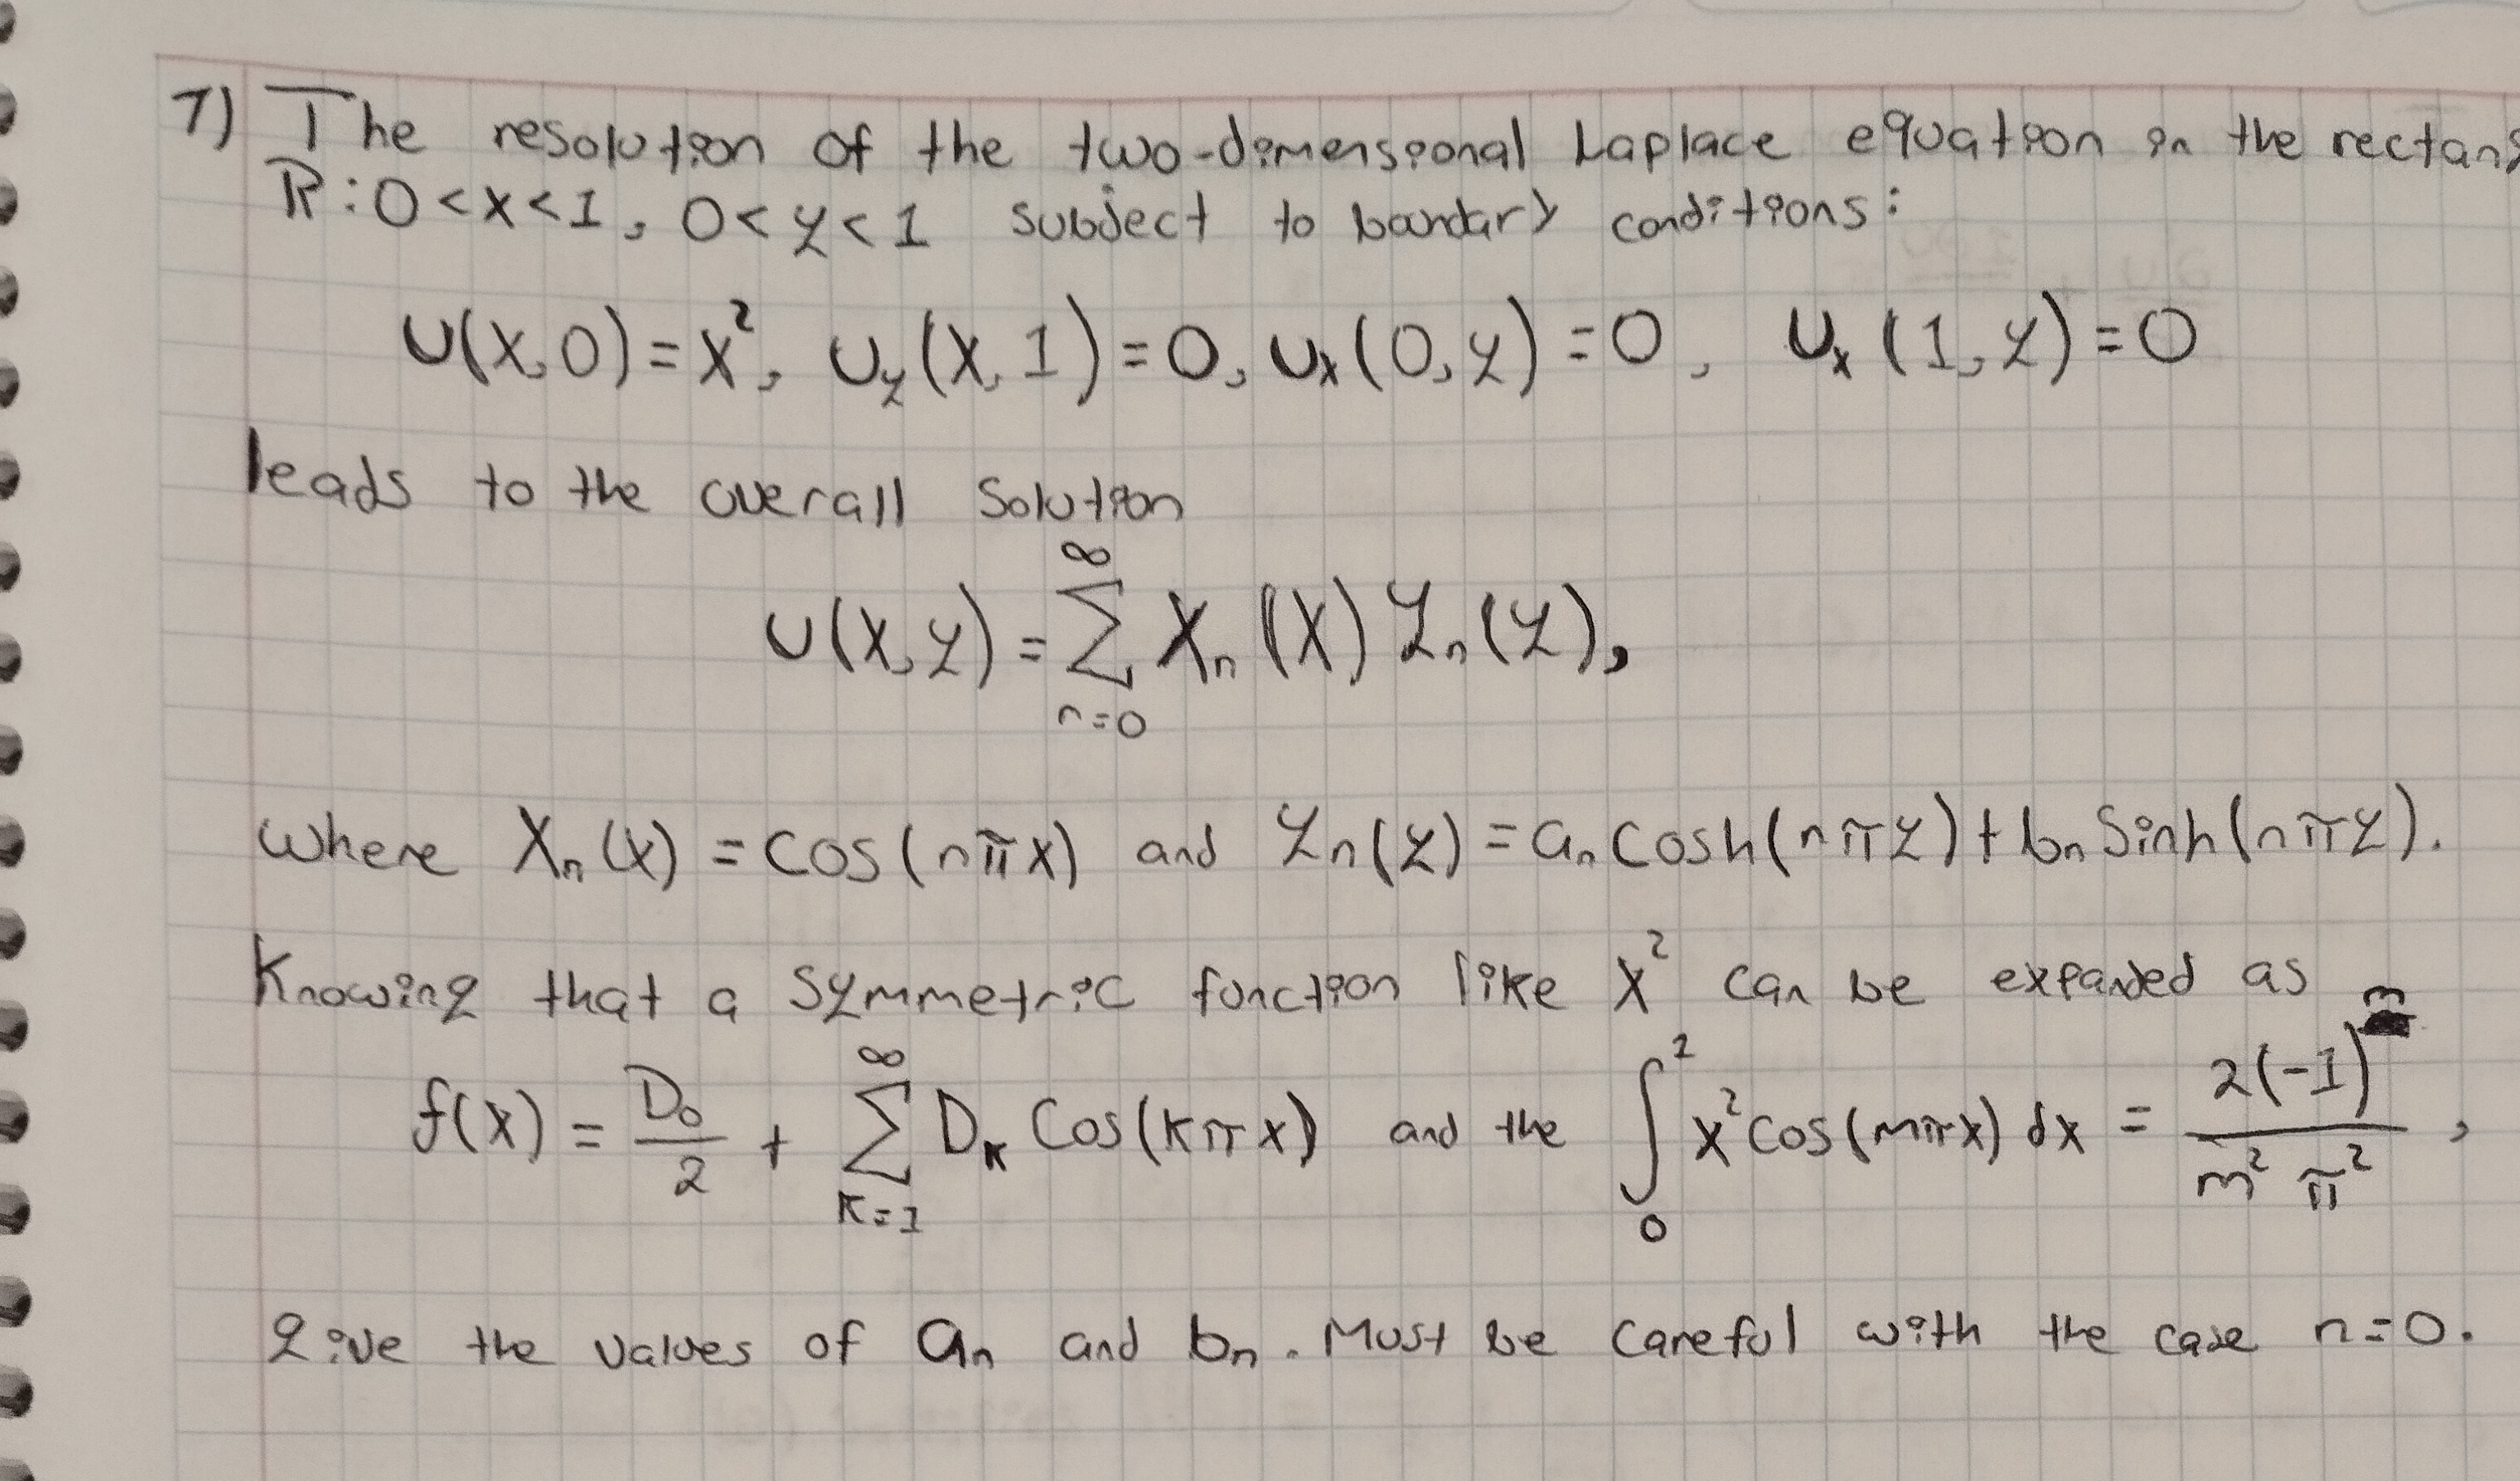 7) The resolution of the two-dimensional Laplace equation in the rectang
R: 0 < x < 1, 0 < y < 1 subject to bandary conditions:
U(x,0) = x², U_y(x,1) = 0, U_x(0,y) = 0, U_x(1,y) = 0
leads to the overall solution
U(x,y) = ∑_{n=0}^{∞} X_n(x) Y_n(y),
where X_n(x) = cos(nπx) and Y_n(y) = a_n cosh(nπy) + b_n sinh(nπy).
Knowing that a symmetric function like x² can be expanded as
f(x) = D_0/2 + ∑_{k=1}^{∞} D_k cos(kπx) and the ∫_0^1 x² cos(mπx) dx = 2(-1)^m / m² π²,
give the values of a_n and b_n. Must be careful with the case n=0.